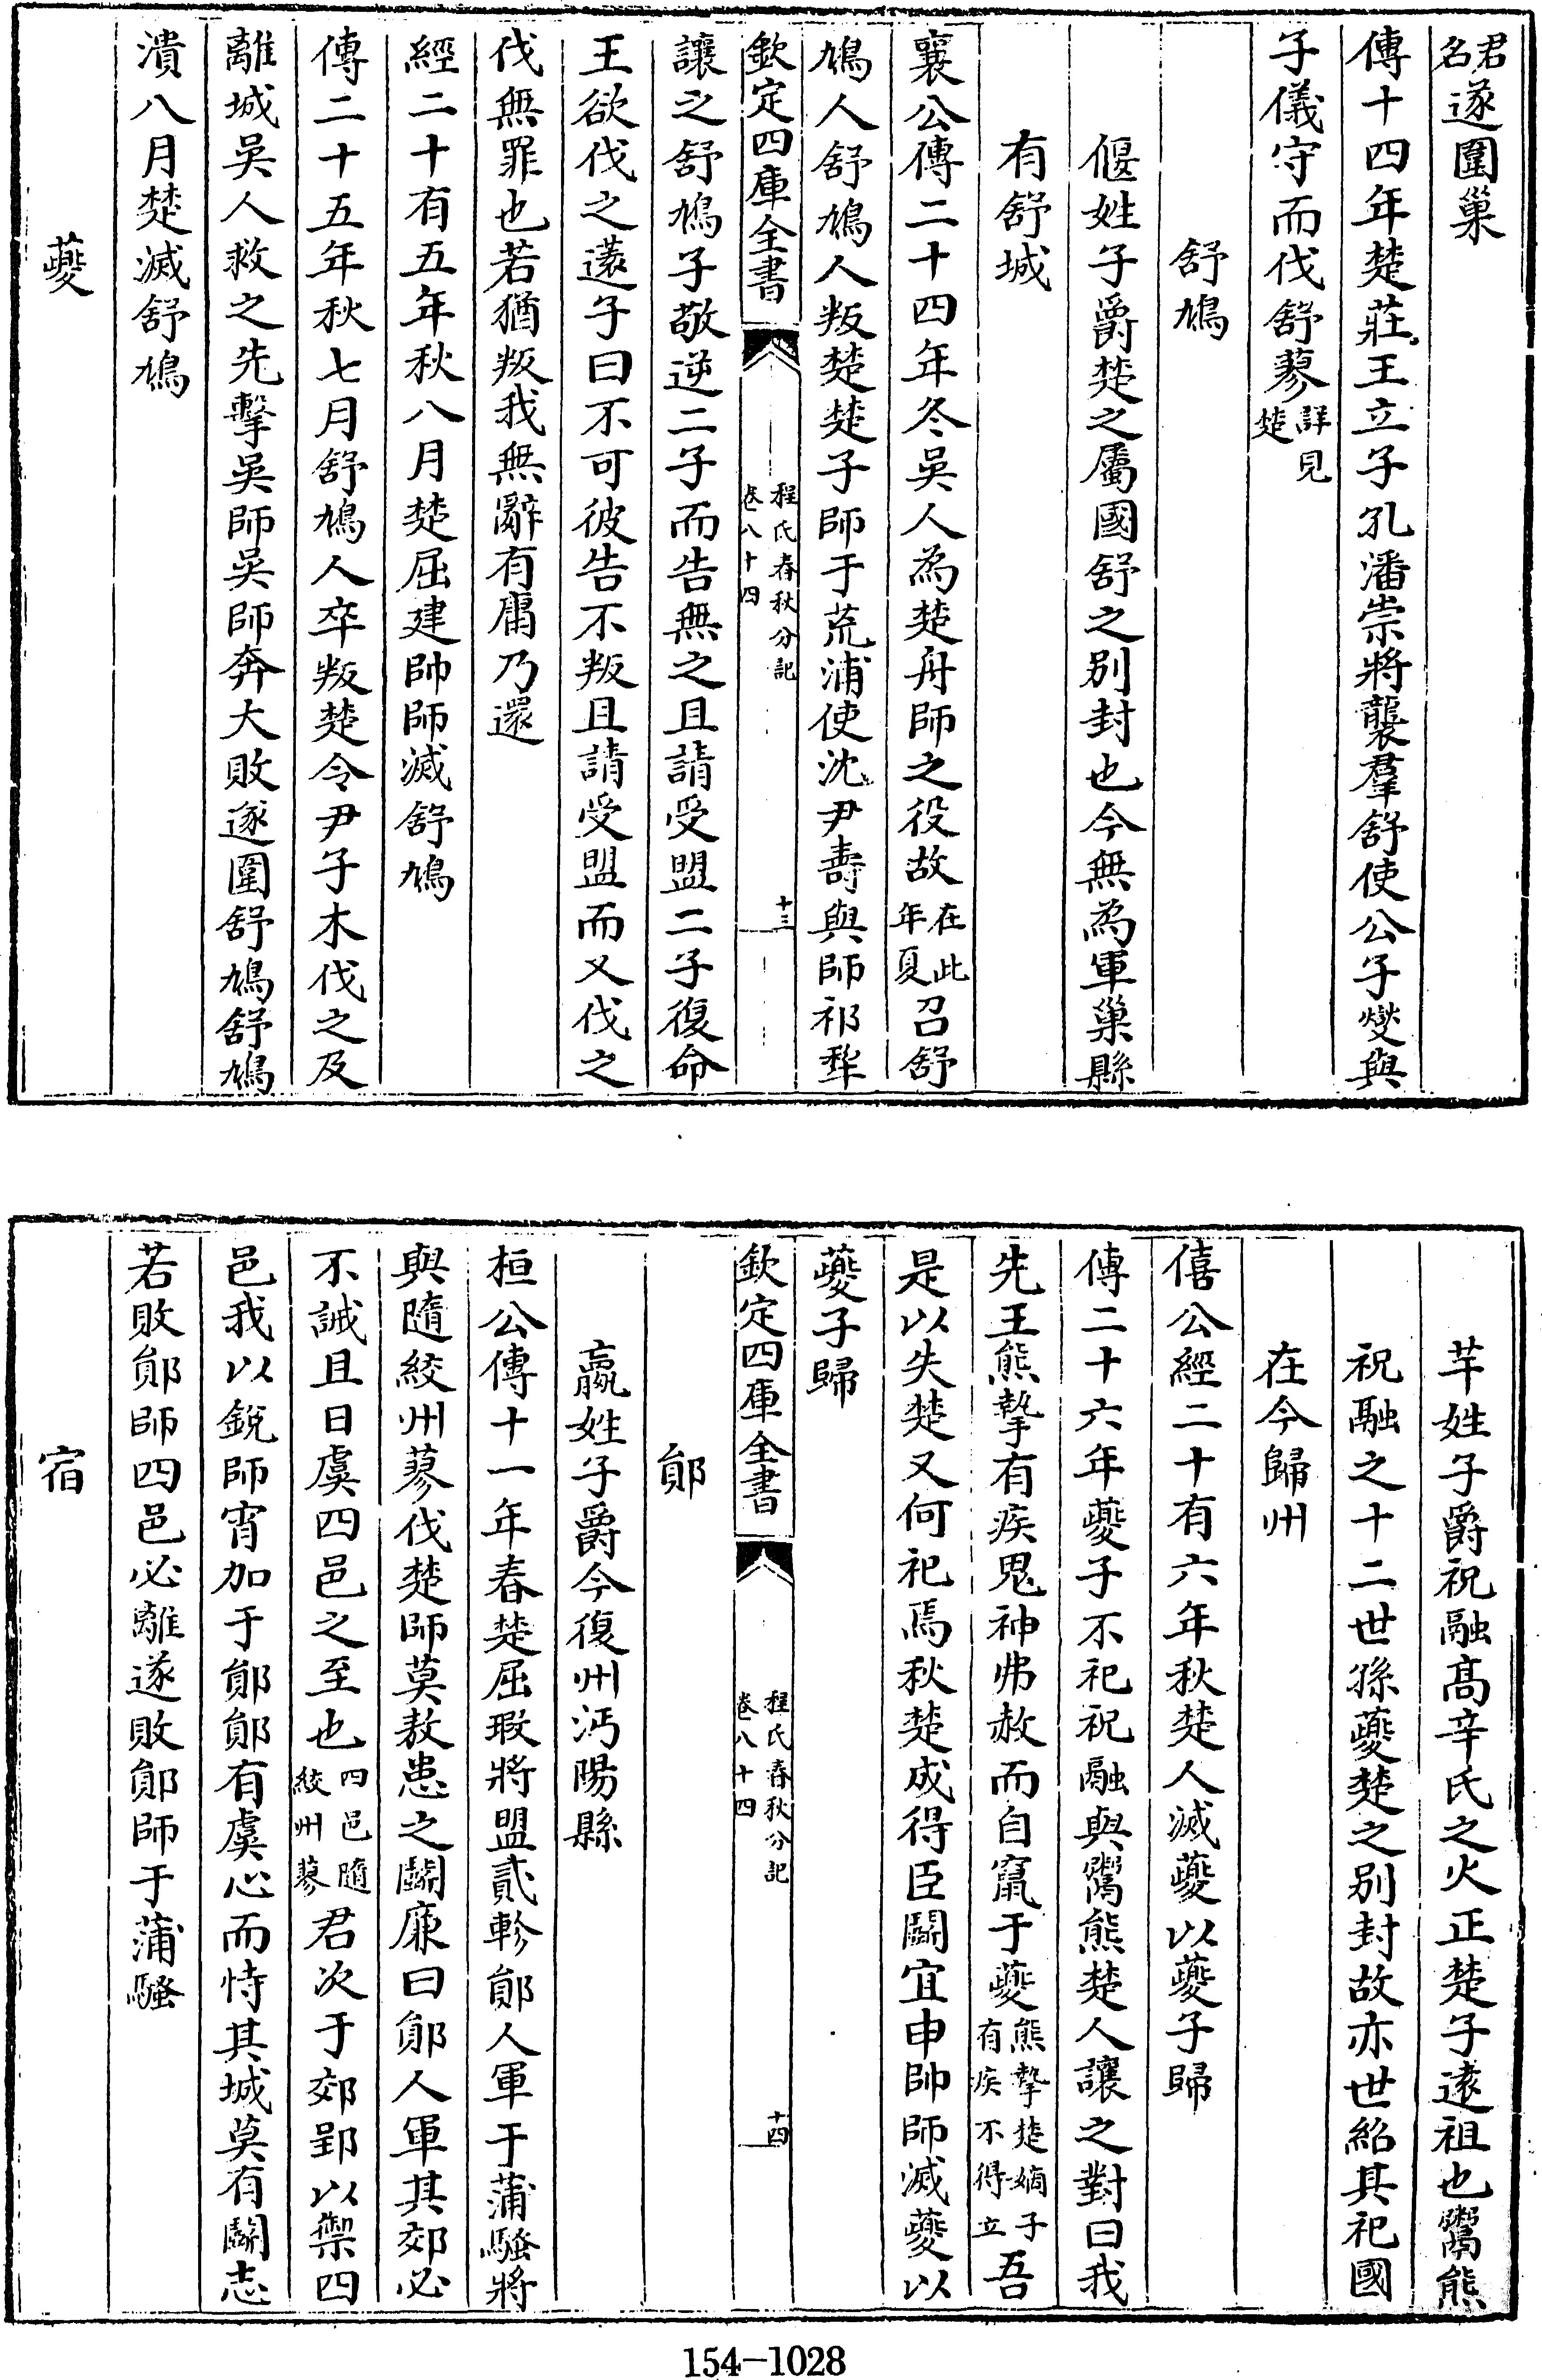 君名遂圍巢
傳十四年楚莊王立子孔潘崇將襲羣舒使公子燮與
子儀守而伐舒蓼詳見楚
舒鳩
偃姓子爵楚之屬國舒之别封也今無為軍巢縣
有舒城
襄公傳二十四年冬吳人為楚舟師之役故在此年夏召舒
鳩人舒鳩人叛楚楚子師于荒浦使沈尹壽與師祁犂
欽定四庫全書
程氏春秋分記
卷八十四
十三
讓之舒鳩子敬逆二子而告無之且請受盟二子復命
王欲伐之薳子曰不可彼告不叛且請受盟而又伐之
伐無罪也若猶叛我無辭有庸乃還
經二十有五年秋八月楚屈建帥師滅舒鳩
傳二十五年秋七月舒鳩人卒叛楚令尹子木伐之及
離城吳人救之先擊吳師吳師奔大敗遂圍舒鳩舒鳩
潰八月楚滅舒鳩
夔
芊姓子爵祝融髙辛氏之火正楚子逺祖也鬻熊
祝融之十二世孫夔楚之别封故亦世紹其祀國
在今歸州
僖公經二十有六年秋楚人滅夔以夔子歸
傳二十六年夔子不祀祝融與鬻熊楚人讓之對曰我
先王熊摯有疾鬼神弗赦而自竄于夔熊摯楚嫡子有疾不得立吾
是以失楚又何祀焉秋楚成得臣鬭宜申帥師滅夔以
夔子歸
欽定四庫全書
程氏春秋分記
卷八十四
十四
鄖
嬴姓子爵今復州沔陽縣
桓公傳十一年春楚屈瑕將盟貳軫鄖人軍于蒲騷將
與隨絞州蓼伐楚師莫敖患之鬭廉曰鄖人軍其郊必
不誡且日虞四邑之至也四邑隨絞州蓼君次于郊郢以禦四
邑我以銳師宵加于鄖鄖有虞心而恃其城莫有鬭志
若敗鄖師四邑必離遂敗鄖師于蒲騷
宿
154-1028